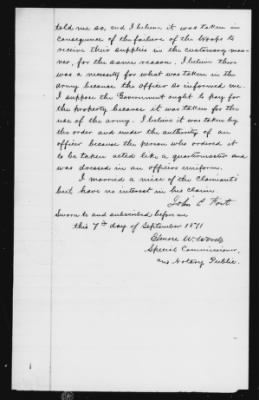 told me so, and I believe it was taken in
consequence of the failure of the troops to
receive their supplies in the customary man-
ner, for the same reason. I believe there
was a necessity for what was taken in the
army because the officer so informed me.
I suppose the Government ought to pay for
the property because it was taken for the
use of the army. I believe it was taken by
the order and under the authority of an
officer because the person who ordered it
to be taken acted like a quartermaster and
was dressed in an officers uniform.
I married a niece of the claimants
but have no interest in his claim.
John C
Sworn to and subscribed before me
this 7th day of September 1871
W. Woods
Special Commissioner,
and Notary Public.